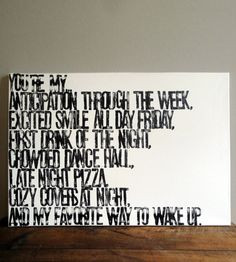 YOU'RE MY...
ANTICIPATION THROUGH THE WEEK,
EXCITED SMILE ALL DAY FRIDAY,
FIRST DRINK OF THE NIGHT,
CROWDED DANCE HALL,
LATE NIGHT PIZZA,
COZY COVERS AT NIGHT,
AND MY FAVORITE WAY TO WAKE UP.